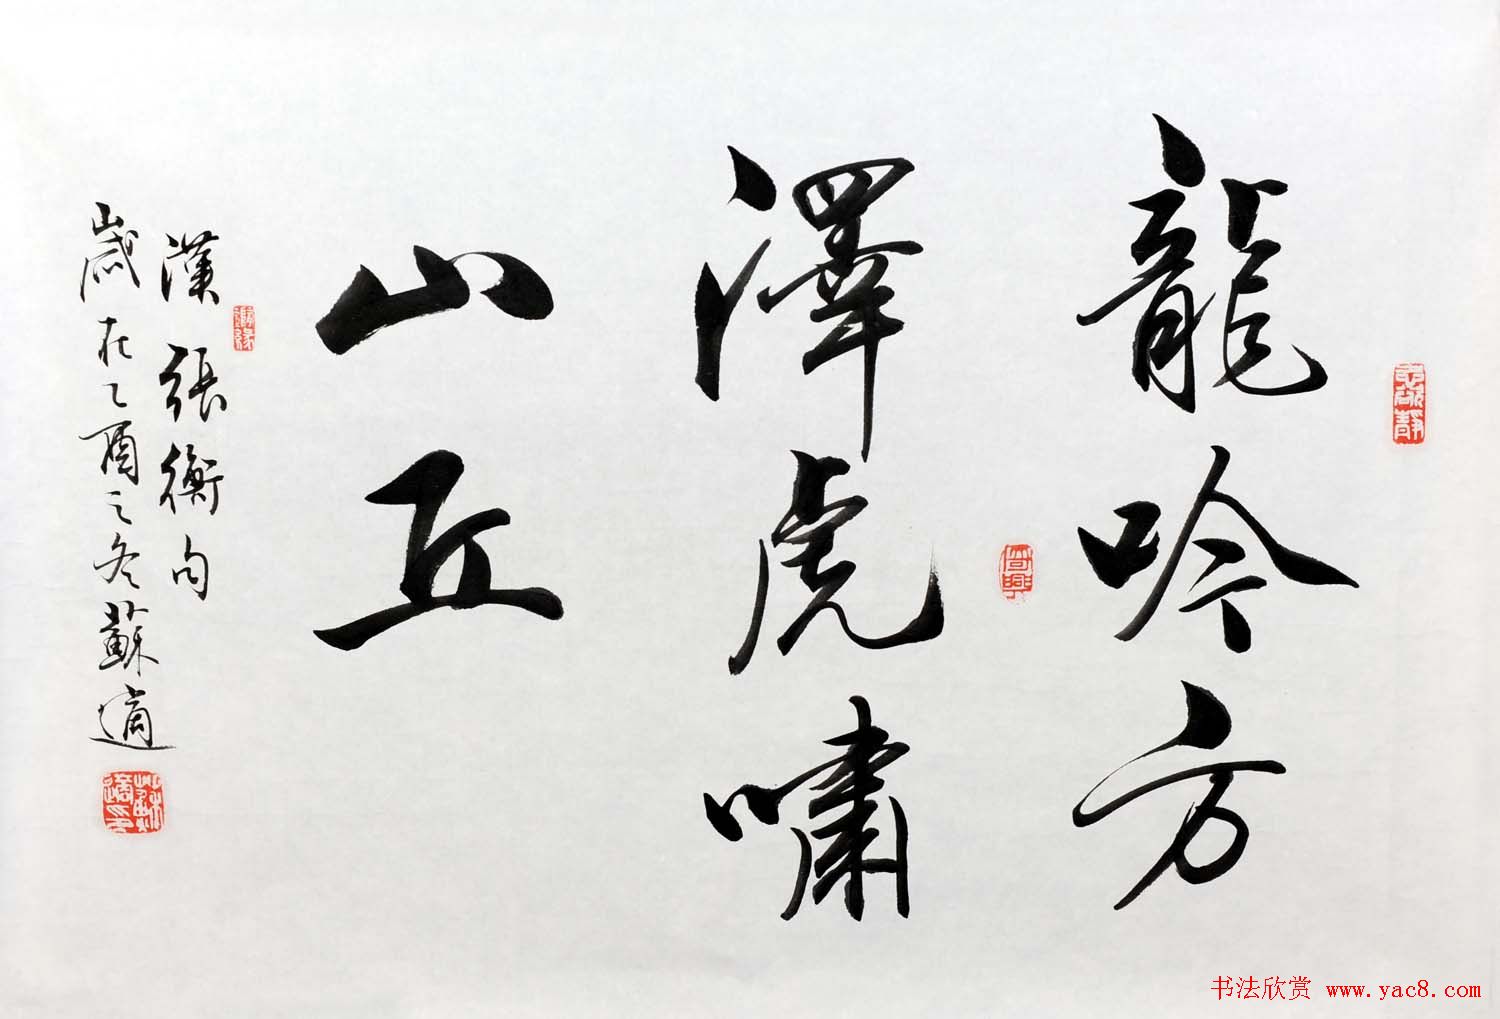 龍吟方
澤虎嘯
山丘
漢張衡句
歲在乙酉之冬蘇適
书法欣赏 www.yac8.com